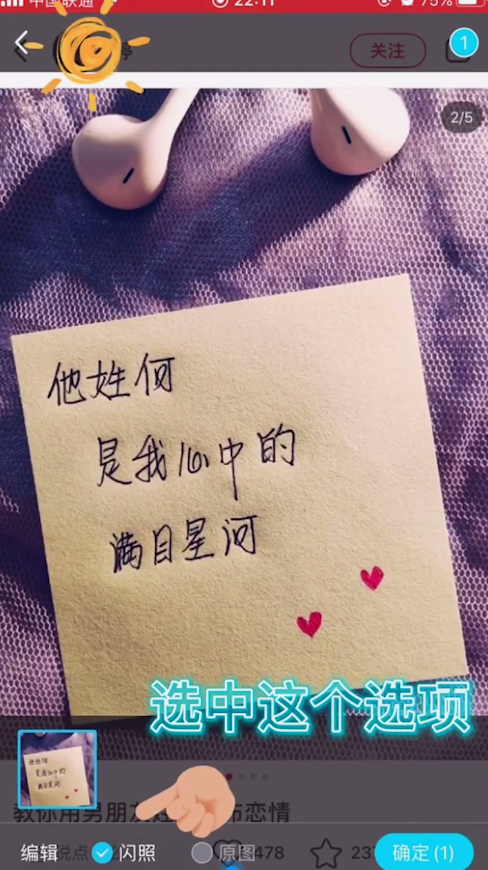 中国联通
22:11
75%
关注
1
2/5
他姓何
是我心中的
满目星河
选中这个选项
他姓何
是我心中的
满目星河
教你用男朋友
布恋情
编辑
闪照
原图
说点
478
237
确定(1)